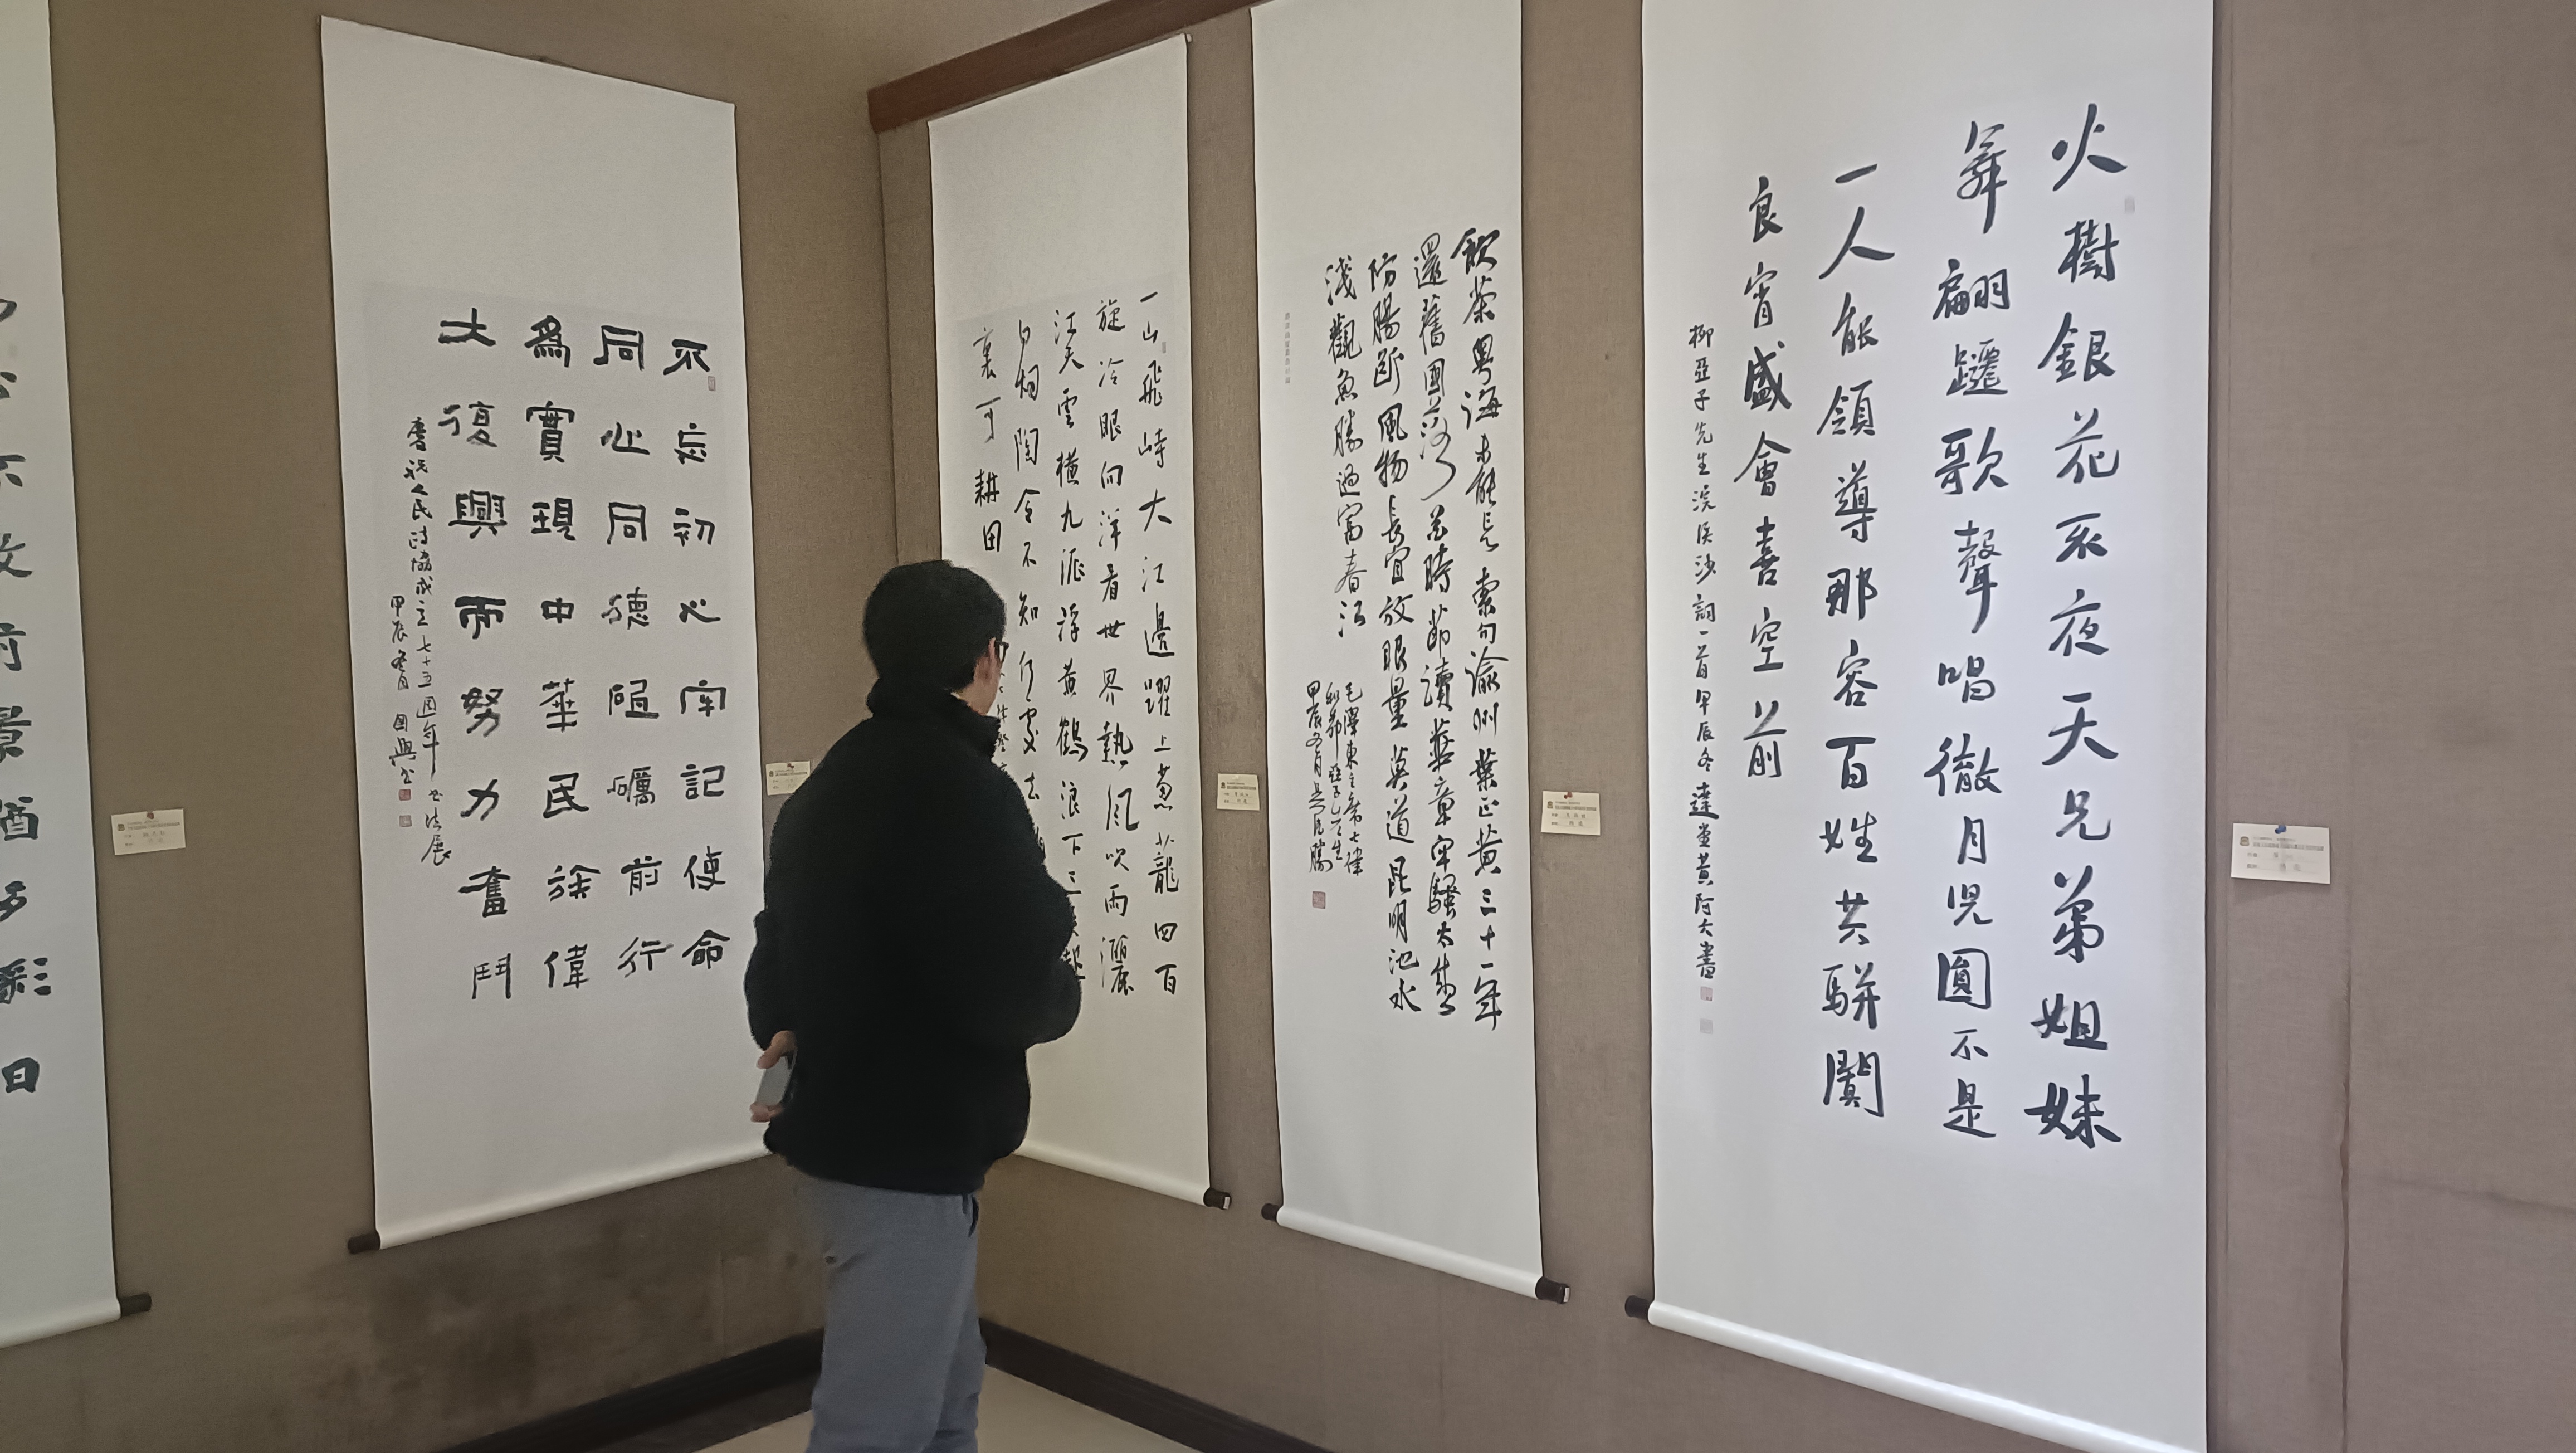 火樹銀花不夜天兄弟姐妹
舞翩躚歌聲唱徹月兒圓不是
一人能領導那容百姓共駢闐
良宵盛會喜空前
柳亞子先生浣溪沙詞一首甲辰冬達盦黃阿六書
飲茶粵海未能忘索句渝州葉正黃三十一年
還舊國落花時節讀華章牢騷太盛
防腸斷風物長宜放眼量莫道昆明池水
淺觀魚勝過富春江
毛澤東主席七律
和柳亞子先生
甲辰冬月
一山飛峙大江邊躍上蔥蘢四百
旋冷眼向洋看世界熱風吹雨灑
江天雲橫九派浮黃鶴浪下三吳起
白烟陶令不知何處去
裏可耕田
不忘初心牢記使命
同心同德砥礪前行
為實現中華民族偉
大復興而努力奮鬥
慶祝人民政協成立七十五周年書法展
甲辰冬月國興書
前景
多彩日